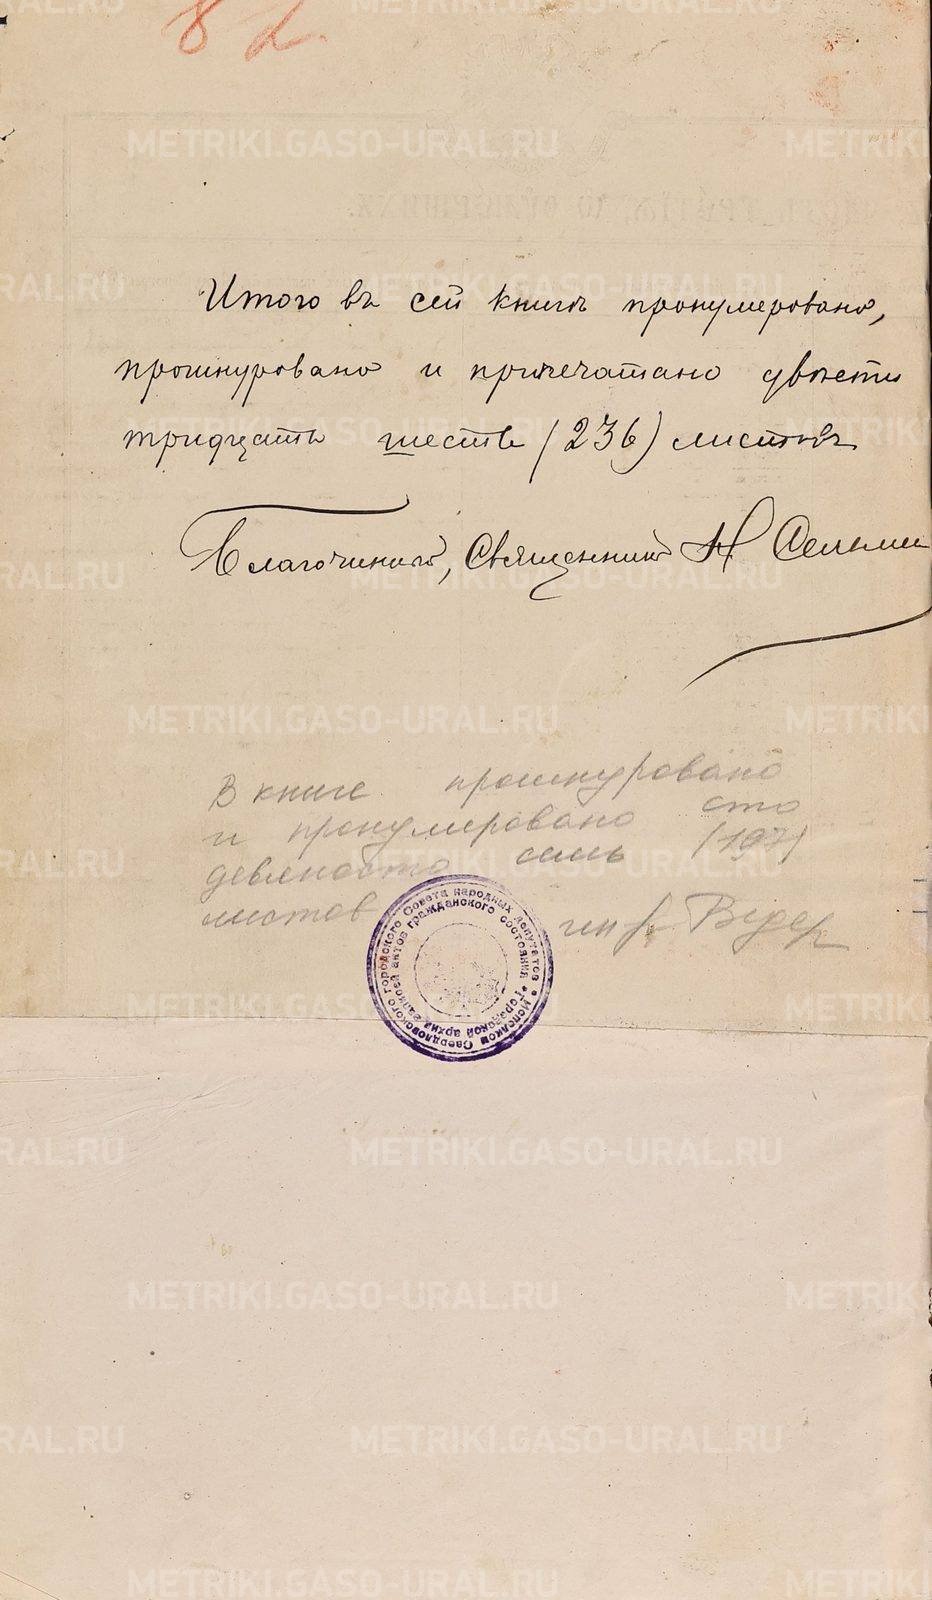 82.
Итого въ сей книгѣ пронумеровано,
прошнуровано и припечатано двѣсти
тридцать шесть (236) листовъ
Благочинный, Священникъ Н
В книге прошнуровано
и пронумеровано сто
девяносто семь (197)
листов
Исполком Свердловского городского Совета народных депутатов
Городской архив записей актов гражданского состояния
METRIKI.GASO-URAL.RU